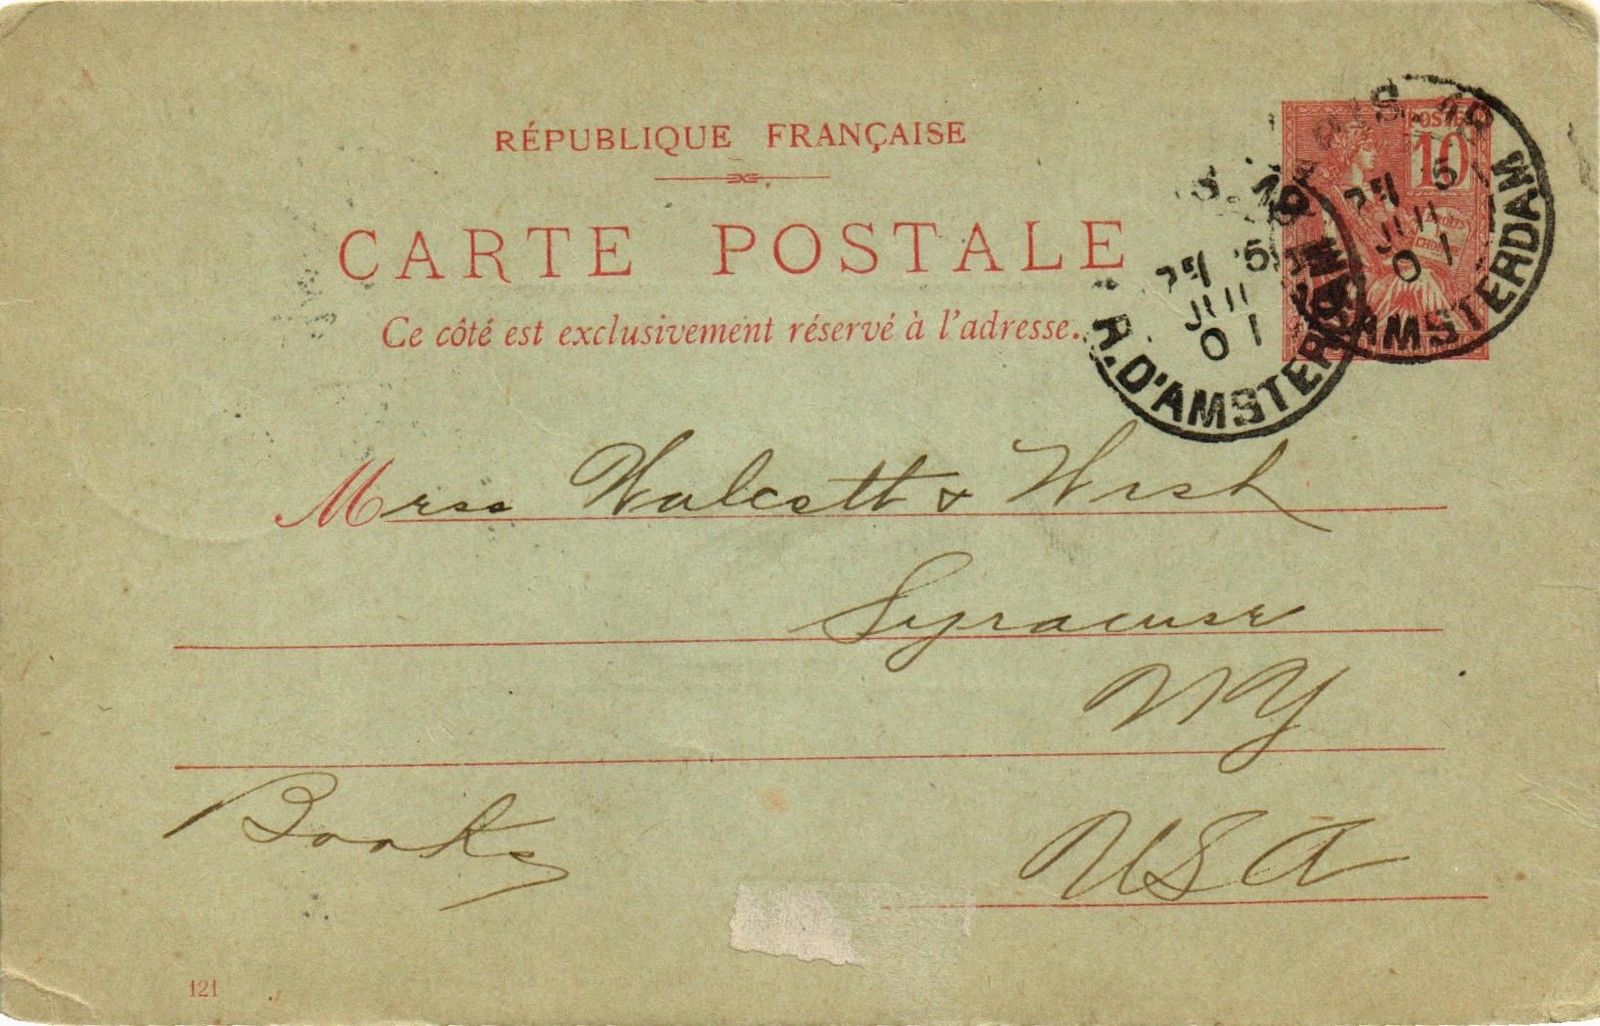 RÉPUBLIQUE FRANÇAISE
CARTE POSTALE
Ce côté est exclusivement réservé à l'adresse.
POSTES
10
PARIS
R. D'AMSTERDAM
5
JUIL
01
R. D'AMSTERDAM
5
JUIL
01
Mrss Walcott & Wish
Syracuse
NY
Books
USA
121